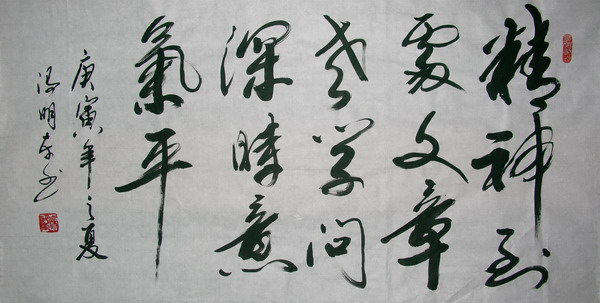 精神到
處文章
老學問
深時意
氣平
庚寅年之夏
馮明春書